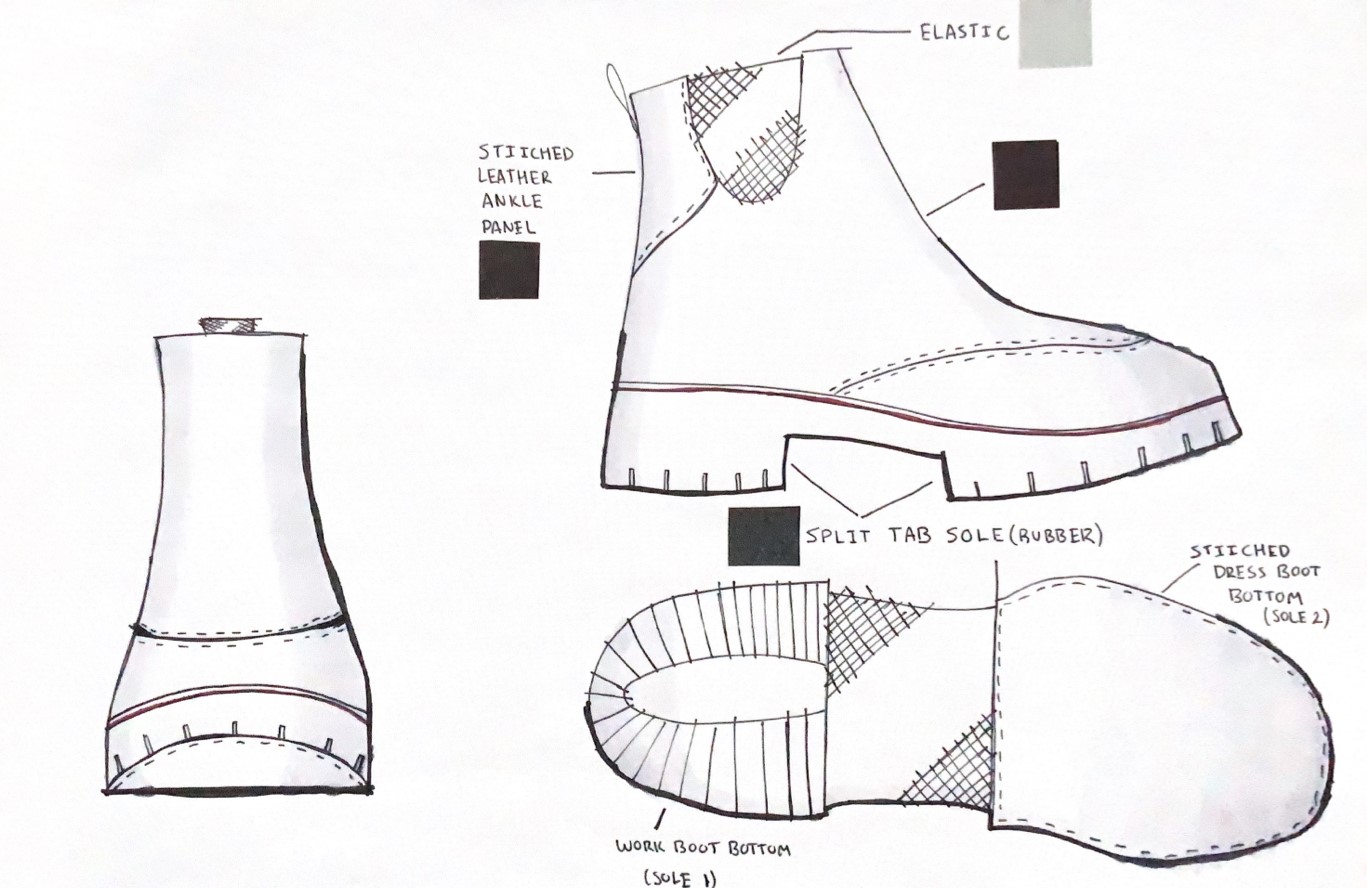 ELASTIC
STIICHED
LEATHER
ANKLE
PANEL
SPLIT TAB SOLE (RUBBER)
STIICHED
DRESS BOOT
BOTTOM
(SOLE 2)
WORK BOOT BOTTOM
(SOLE 1)